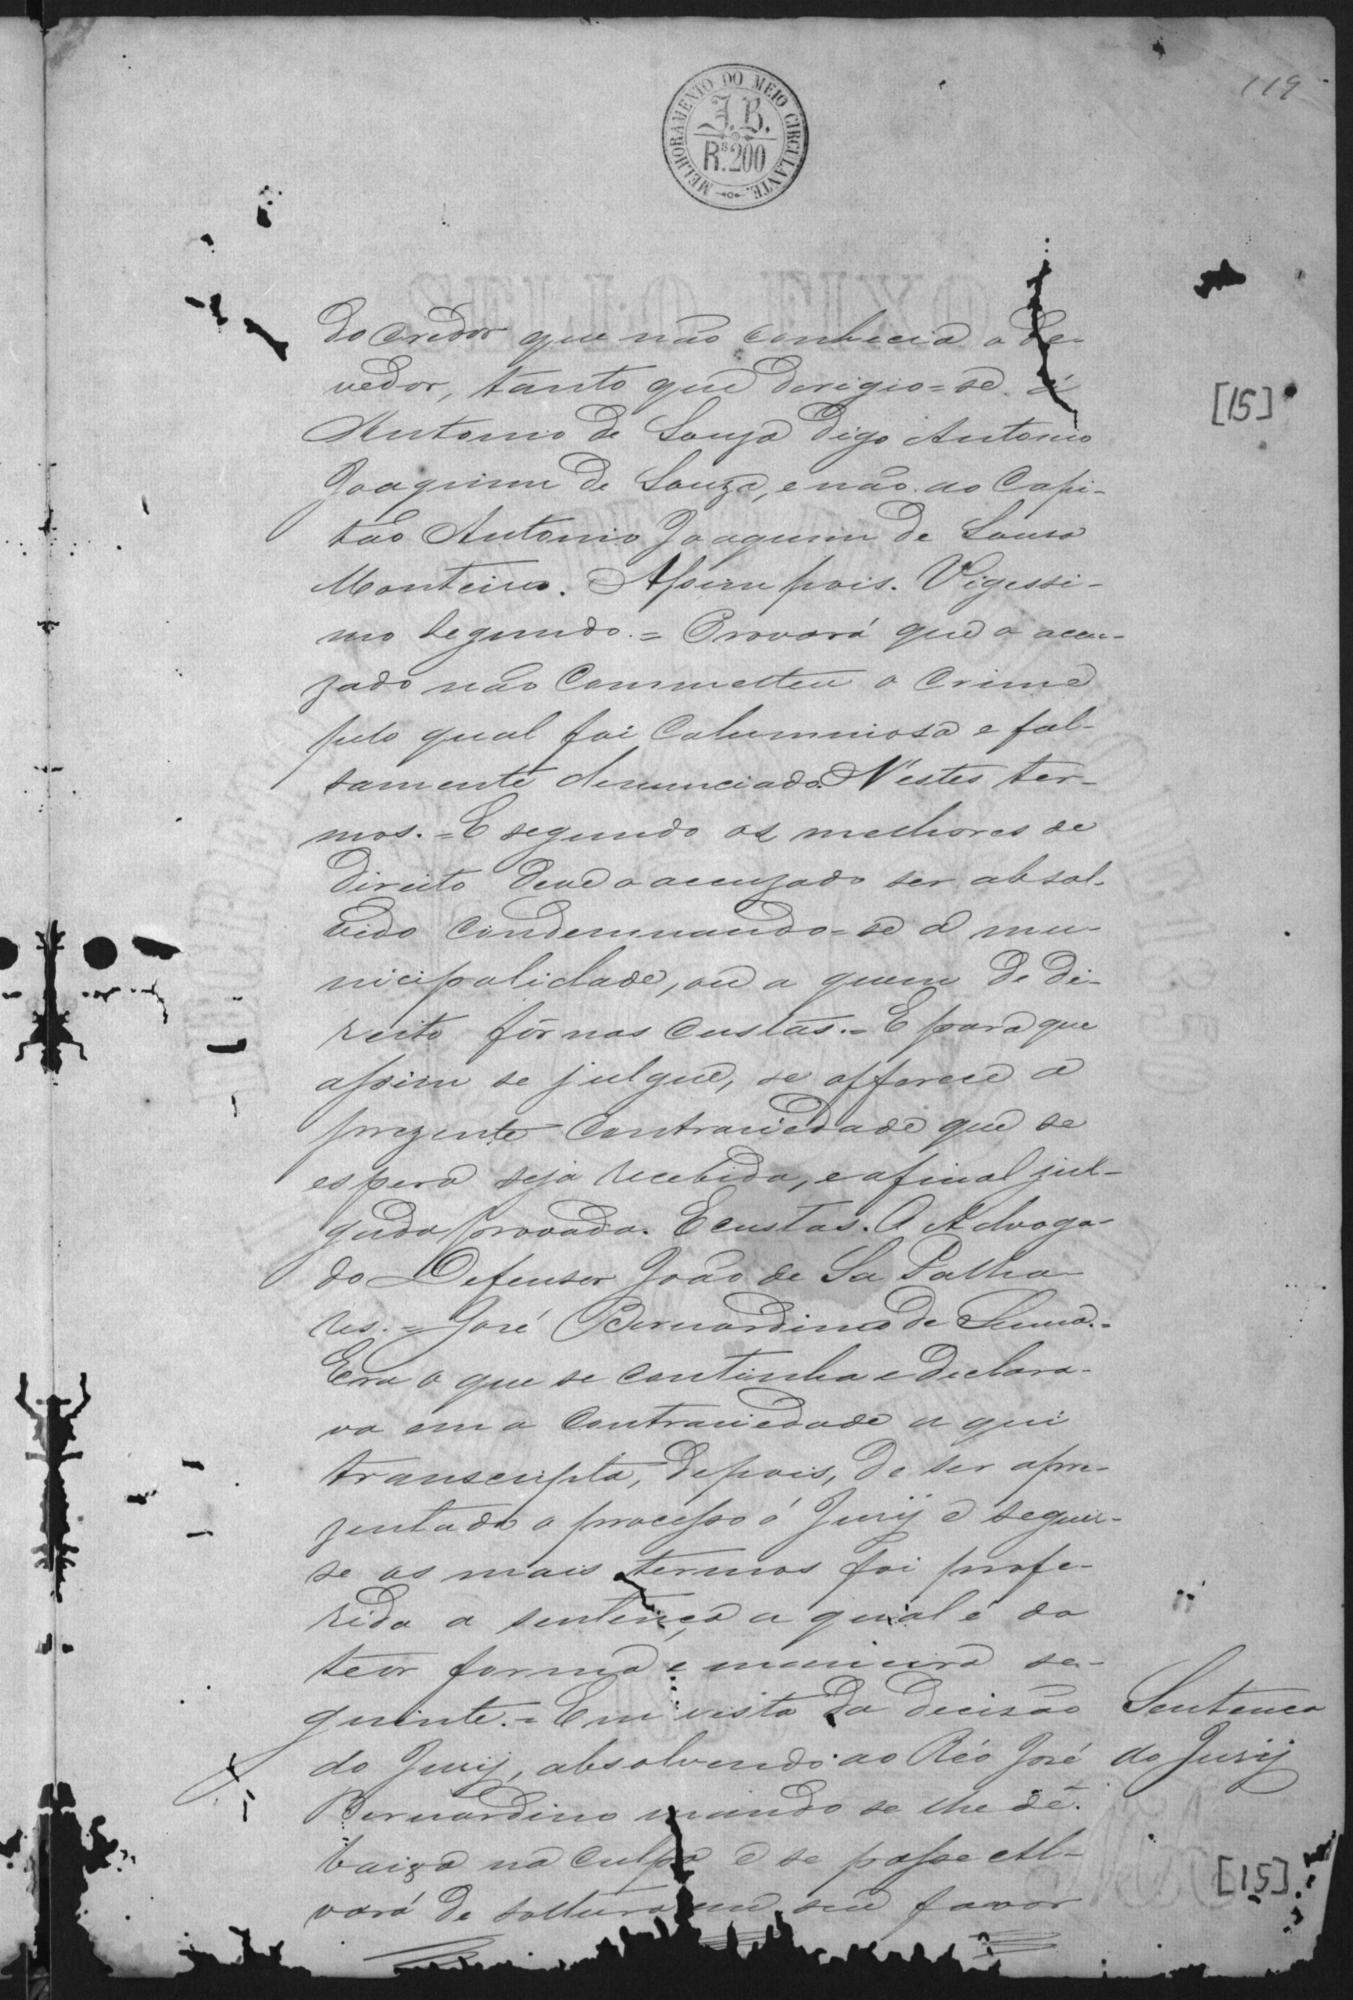 119
MELHORAMENTO DO MEIO CIRCULANTE.
J. B.
Rs. 200
do credor que não conhecia o de-
vedor, tanto que dirigio=se á
Antonio de Souza digo Antonio
Joaquim de Souza, e não ao Capi-
tão Antonio Joaquim de Souza
Monteiro. Assim pois. Vigessi-
mo segundo.= Provará que o acu-
zado não commetteu o crime
pelo qual foi calumniosa e fal-
samente denunciado. N'estes ter-
mos.= E segundo os melhores de
direito deve o accuzado ser absol-
vido condemnando=se a mu-
nicipalidade, ou a quem de di-
reito fôr nas custas.= E para que
assim se julgue, se offerece a
prezente contrariedade que se
espera seja recebida, e afinal jul-
gada provada. E custas. O Advoga-
do Defensor João de Sa Palha
res.= José Bernardino de Senna.=
Era o que se continha e declara-
va em a contrariedade a qui
transcripta, depois, de ser apre-
zentado o processo ó Jurij e seguir-
se os mais termos foi profe-
rida a sentença a qual é do
teor forma e maneira se-
guinte.= Em vista da decisão
do Jurij, absolvendo ao Réo José
Bernardino mando se lhe dê
baixa na culpa e se passe Al-
vará de soltura em seu favor
Sentença
do Jurij
[15]
[15]